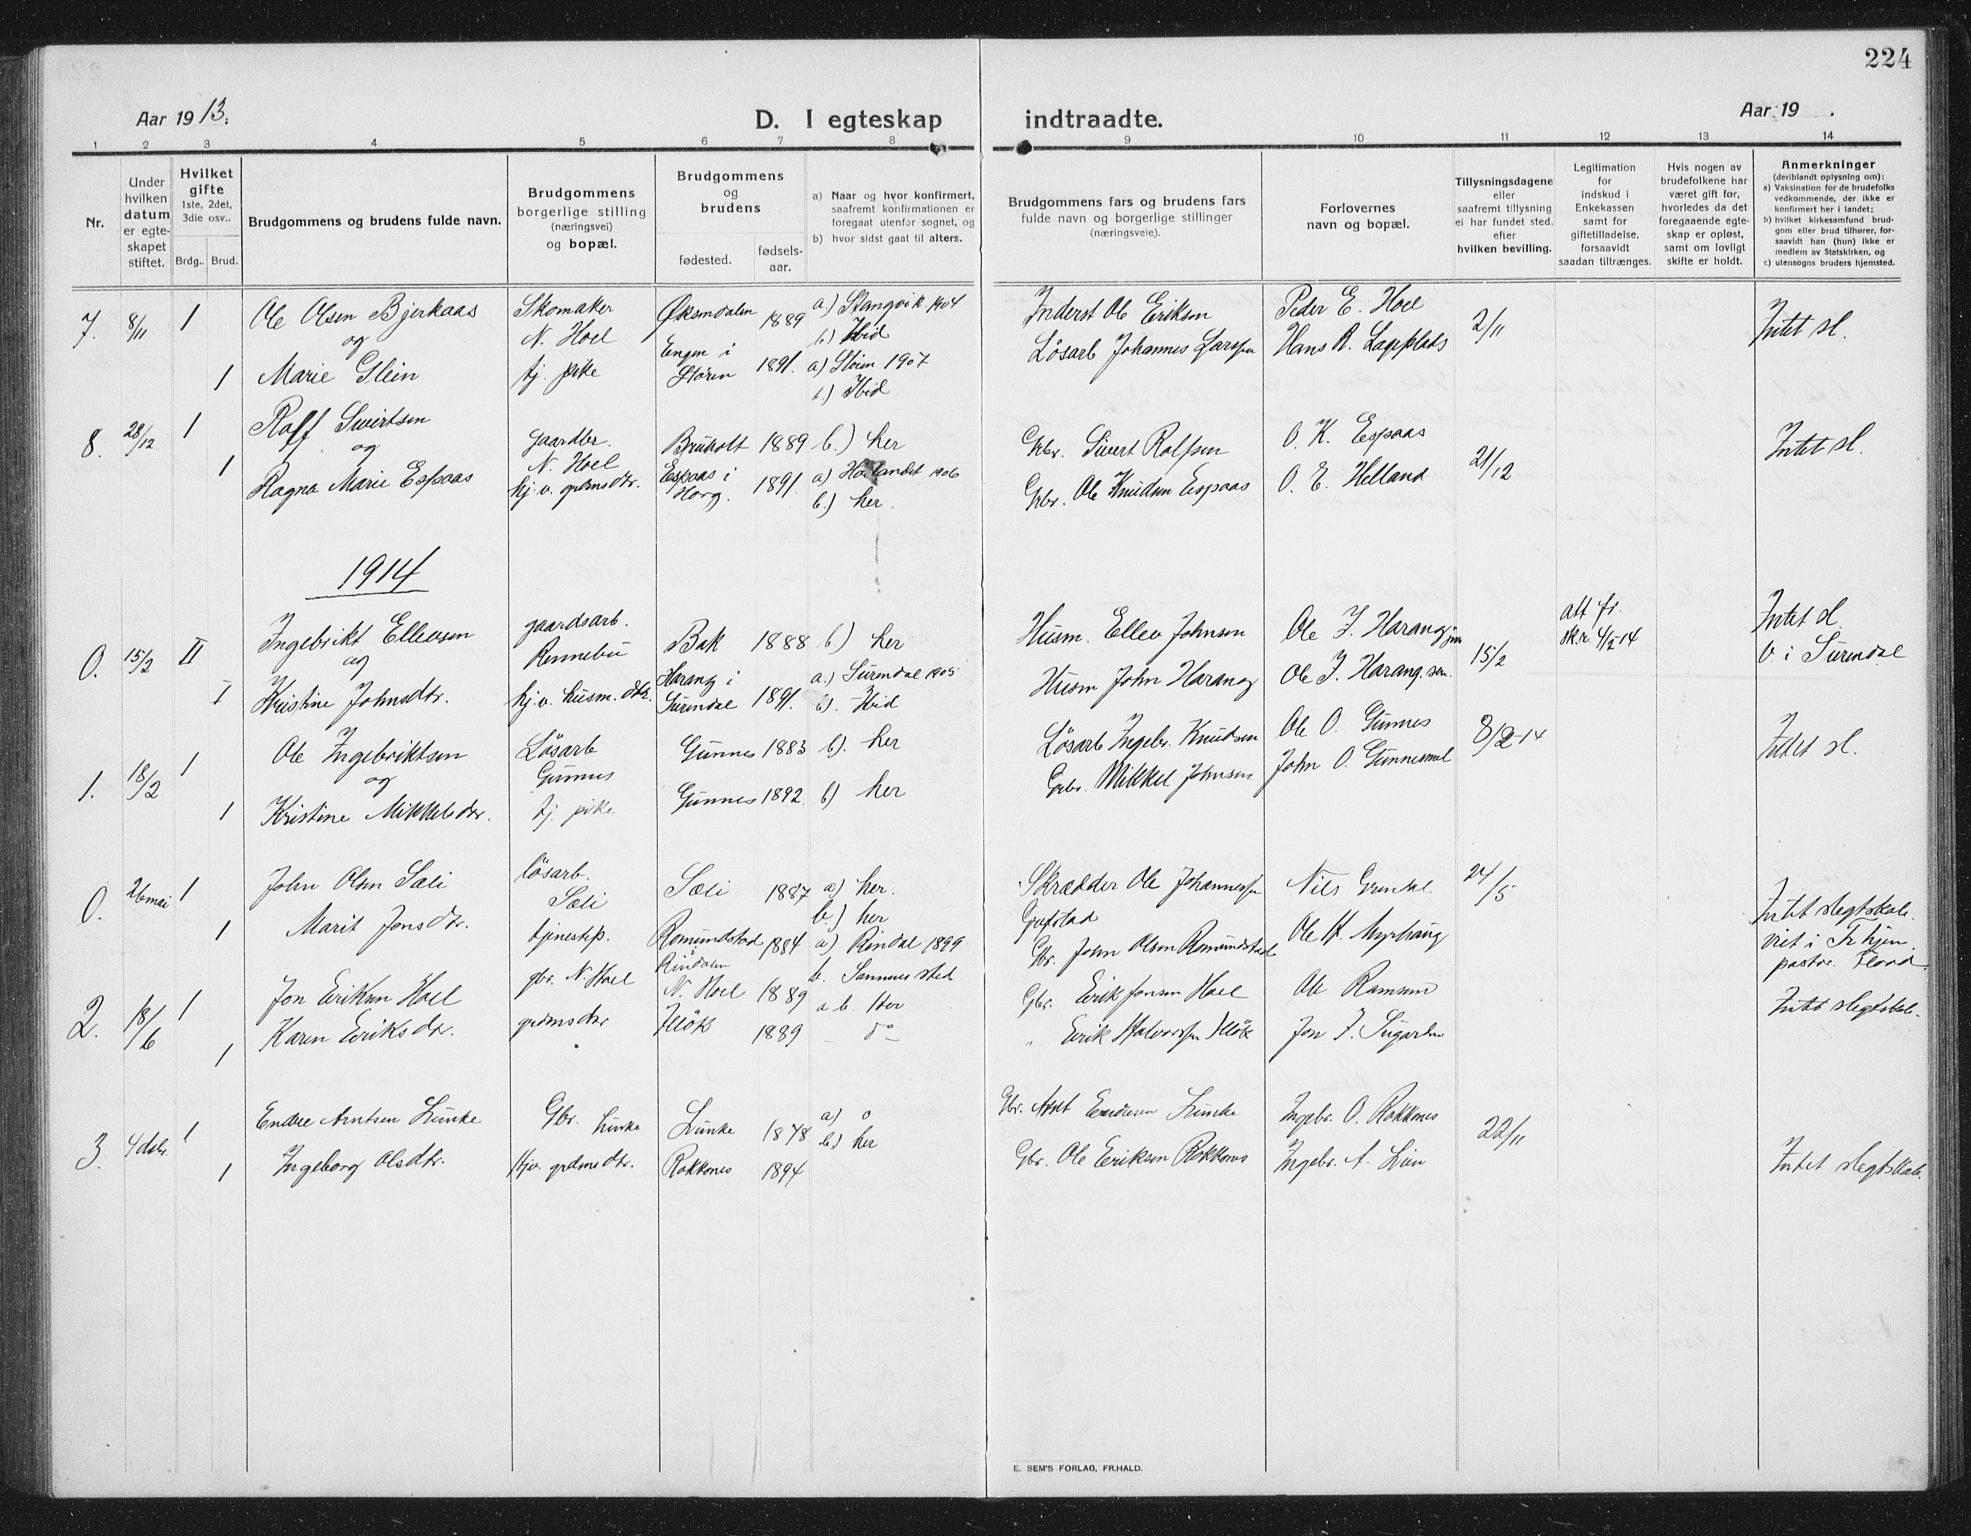 224
Aar 1913.
D. I egteskap indtraadte.
Aar 19 .
1 2 3 4 5 6 7 8 9 10 11 12 13 14
Nr.
Under hvilken datum er egte-skapet stiftet.
Hvilket gifte 1ste, 2det, 3die osv..
Brdg.. Brud.
Brudgommens og brudens fulde navn.
Brudgommens borgerlige stilling (næringsvei) og bopæl.
Brudgommens og brudens
fødested.
fødsels-aar.
a) Naar og hvor konfirmert, saafremt konfirmationen er foregaat utenfor sognet, og
b) hvor sidst gaat til alters.
Brudgommens fars og brudens fars fulde navn og borgerlige stillinger (næringsveie).
Forlovernes navn og bopæl.
Tillysningsdagene eller saafremt tillysning ei har fundet sted. efter hvilken bevilling.
Legitimation for indskud i Enkekassen samt for giftetilladelse, forsaavidt saadan tiltrænges.
Hvis nogen av brudefolkene har været gift før, hvorledes da det foregaaende egte-skap er opløst, samt om lovligt skifte er holdt.
Anmerkninger (deriblandt oplysning om):
a) Vaksination for de brudefolks vedkommende, der ikke er konfirmert her i landet;
b) hvilket kirkesamfund brud-gom eller brud tilhører, for-saavidt han (hun) ikke er medlem av Statskirken, og
c) utensogns bruders hjemsted.
7. 8/11 1 Ole Olsen Bjerkaas Skomaker Øksendalen 1889 a) Stangvik 1904 Inderst Ole Eriksen Peder E. Hoel 2/11 Intet sl.
og N. Hoel b) Ibid
1 Marie Glein tj. pike Engen i Støren 1891. a) Støren 1907 Løsarb Johannes Larssen Hans R.
b.) Ibid.
8. 28/12 1 Rolf Sivertsen gaardbr. Bruholt 1889 b.) her Gbr. Sivert Rolfsen O. K. Espaas 21/12 Intet sl.
og N. Hoel
1 Ragna Marie Espaas hj. v. grdmsdtr. Espaas i Horg. 1891. a) Hølandet 1906 Gbr. Ole Knudsen Espaas O. E. Helland
b.) her.
1914
0. 15/2 II Ingebrikt Ellevsen gaardsarb. Bak 1888 b.) her Husm. Ellev Johnsen Ole J. Harang jun 15/2 att fr. skr. 4/2 14 Intet sl.
og Rennebu V i Surendal
I Kristine Johnsdtr. hj. v. husm. dtr. Harang i Surendal 1891. a.) Surendal 1905 Husm John Harang Ole J. Harang. sen.
b). Ibid
1. 18/2 1 Ole Ingebriktsen Løsarb Gunnes 1883 b). her Løsarb Ingebr. Knudsen Ole O. Gunnes 8/2-14 Intet sl.
og Gunnes
1 Kristine Mikkelsdtr. tj. pike Gunnes 1892 b) her Gbr. Mikkel Johnsen John O. Gunnesmel
0. 26 mai 1 John Olsen Sæli løsarb. Sæli Sæli 1887 a) her. Skrædder Ole Johannessen Nils 24/5 Intet slegtskab.
b.) her
1 Marit Jonsdtr. tjenestep. Romundstad Rindalen 1884 a) Rindal 1899 Gbr. John Olsen Romundstad Ole H. Myrhaug viet i Tr.hjem pastor
b. Sammesteds
2. 18/6 1 Jon Eriksen Hoel gbr. N. Hoel N. Hoel 1889 a b. Her Gbr. Erik Jonsen Hoel Ole Ramsem Intet slegtskab.
1 Karen Eriksdtr. grdmsdtr Illøk 1889 – d° – " Erik Halvorssen Illøk Jon J.
3. 4 dsbr. 1 Endre Arntsen Lunke Gbr. Lunke Lunke 1878 a) o b) her Gbr. Arnt Endresen Lunke Ingebr. O. Rokkones 22/11 Intet slegtskab.
1 Ingeborg Olsdtr. hjv. grdmsdtr. Rokkones 1894 Gbr. Ole Eriksen Rokkones Ingebr. A. Lien
E. SEM'S FORLAG, FR.HALD.